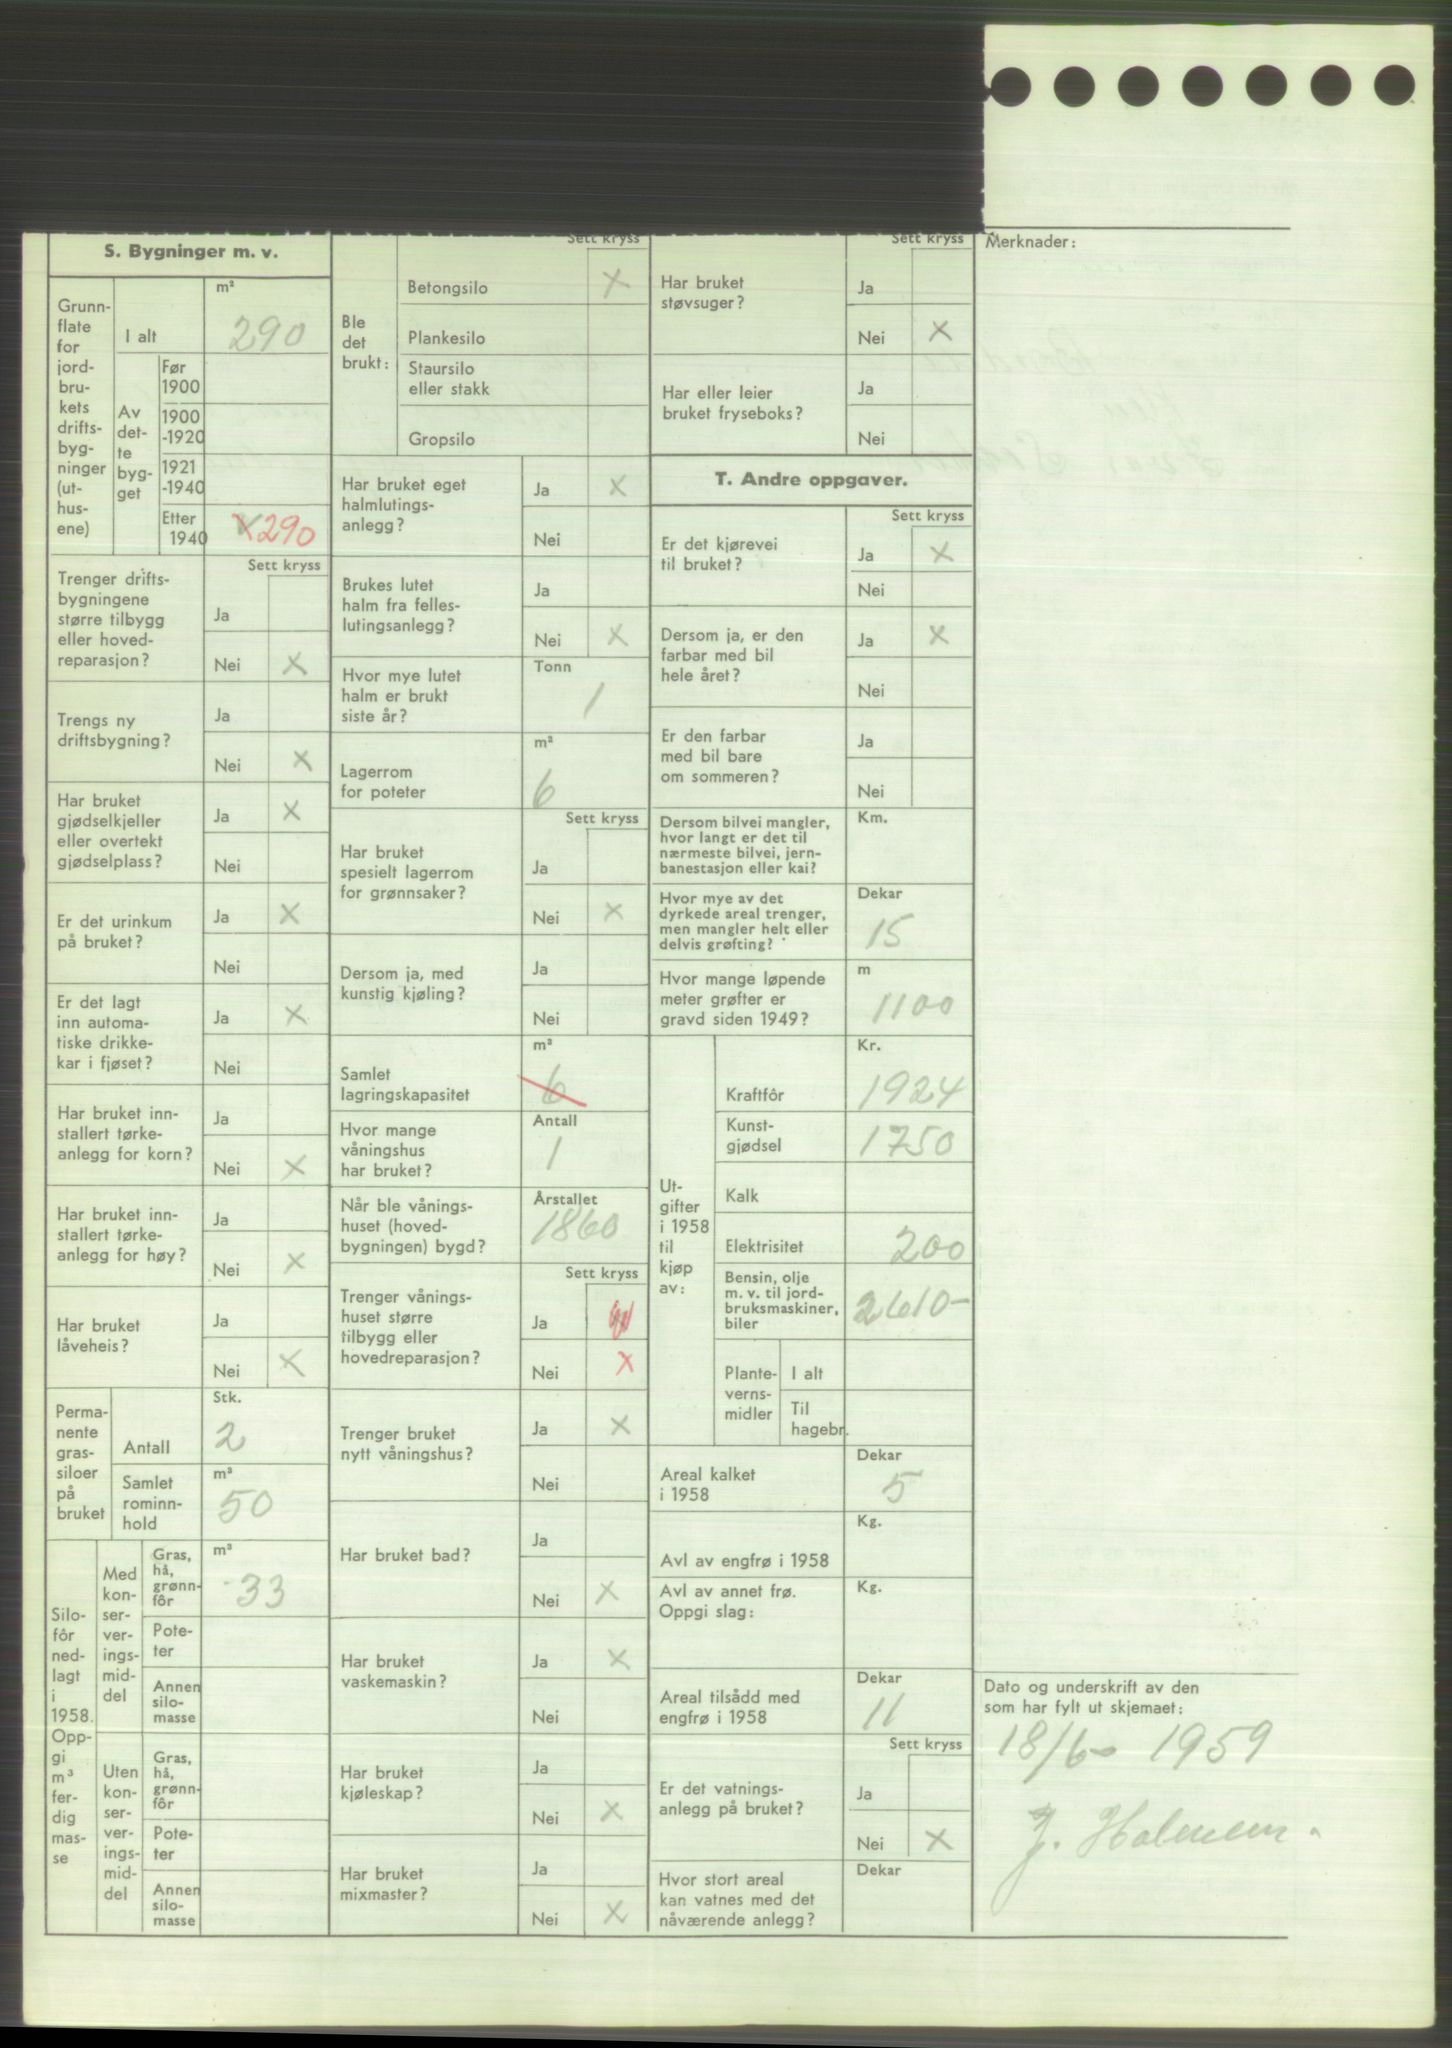 S. Bygninger m. v.
Grunn-
flate
for
jord-
bru-
kets
drifts-
byg-
ninger
(ut-
hus-
ene)
I alt
m²
290
Av
det-
te
byg-
get
Før
1900
1900
-1920
1921
-1940
Etter
1940
X 290
Sett kryss
Trenger drifts-
bygningene
større tilbygg
eller hoved-
reparasjon?
Ja
Nei X
Trengs ny
driftsbygning?
Ja
Nei X
Har bruket
gjødselkjeller
eller overtekt
gjødselplass?
Ja X
Nei
Er det urinkum
på bruket?
Ja X
Nei
Er det lagt
inn automa-
tiske drikke-
kar i fjøset?
Ja X
Nei
Har bruket inn-
stallert tørke-
anlegg for korn?
Ja
Nei X
Har bruket inn-
stallert tørke-
anlegg for høy?
Ja
Nei X
Har bruket
låveheis?
Ja
Nei X
Perma-
nente
gras-
siloer
på
bruket
Antall
Stk.
2
Samlet
rominn-
hold
m³
50
Silo-
fôr
ned-
lagt
i
1958.
Opp-
gi
m³
fer-
dig
mas-
se
Med
kon-
ser-
ver-
ings-
mid-
del
Gras,
hå,
grønn-
fôr
m³
33
Pote-
ter
Annen
silo-
masse
Uten
kon-
ser-
ver-
ings-
mid-
del
Gras,
hå,
grønn-
fôr
Pote-
ter
Annen
silo-
masse
Sett kryss
Ble
det
brukt:
Betongsilo X
Plankesilo
Staursilo
eller stakk
Gropsilo
Har bruket eget
halmlutings-
anlegg?
Ja X
Nei
Brukes lutet
halm fra felles-
lutingsanlegg?
Ja
Nei X
Hvor mye lutet
halm er brukt
siste år?
Tonn
1
Lagerrom
for poteter
m²
6
Sett kryss
Har bruket
spesielt lagerrom
for grønnsaker?
Ja
Nei X
Dersom ja, med
kunstig kjøling?
Ja
Nei
Samlet
lagringskapasitet
m³
6
Hvor mange
våningshus
har bruket?
Antall
1
Når ble vånings-
huset (hoved-
bygningen) bygd?
Årstallet
1860
Sett kryss
Trenger vånings-
huset større
tilbygg eller
hovedreparasjon?
Ja
Nei X
Trenger bruket
nytt våningshus?
Ja X
Nei
Har bruket bad?
Ja
Nei X
Har bruket
vaskemaskin?
Ja X
Nei
Har bruket
kjøleskap?
Ja
Nei X
Har bruket
mixmaster?
Ja
Nei X
Sett kryss
Har bruket
støvsuger?
Ja
Nei X
Har eller leier
bruket fryseboks?
Ja
Nei
T. Andre oppgaver.
Sett kryss
Er det kjørevei
til bruket?
Ja X
Nei
Dersom ja, er den
farbar med bil
hele året?
Ja X
Nei
Er den farbar
med bil bare
om sommeren?
Ja
Nei
Dersom bilvei mangler,
hvor langt er det til
nærmeste bilvei, jern-
banestasjon eller kai?
Km.
Hvor mye av det
dyrkede areal trenger,
men mangler helt eller
delvis grøfting?
Dekar
15
Hvor mange løpende
meter grøfter er
gravd siden 1949?
m
1100
Ut-
gifter
i 1958
til
kjøp
av:
Kr.
Kraftfôr 1924
Kunst-
gjødsel 1750
Kalk
Elektrisitet 200
Bensin, olje
m. v. til jord-
bruksmaskiner,
biler
2610-
Plante-
verns-
midler
I alt
Til
hagebr.
Areal kalket
i 1958
Dekar
5
Avl av engfrø i 1958
Kg.
Avl av annet frø.
Oppgi slag:
Kg.
Areal tilsådd med
engfrø i 1958
Dekar
11
Sett kryss
Er det vatnings-
anlegg på bruket?
Ja
Nei X
Hvor stort areal
kan vatnes med det
nåværende anlegg?
Dekar
Merknader:
Dato og underskrift av den
som har fylt ut skjemaet:
18/6- 1959
J. Holmen.